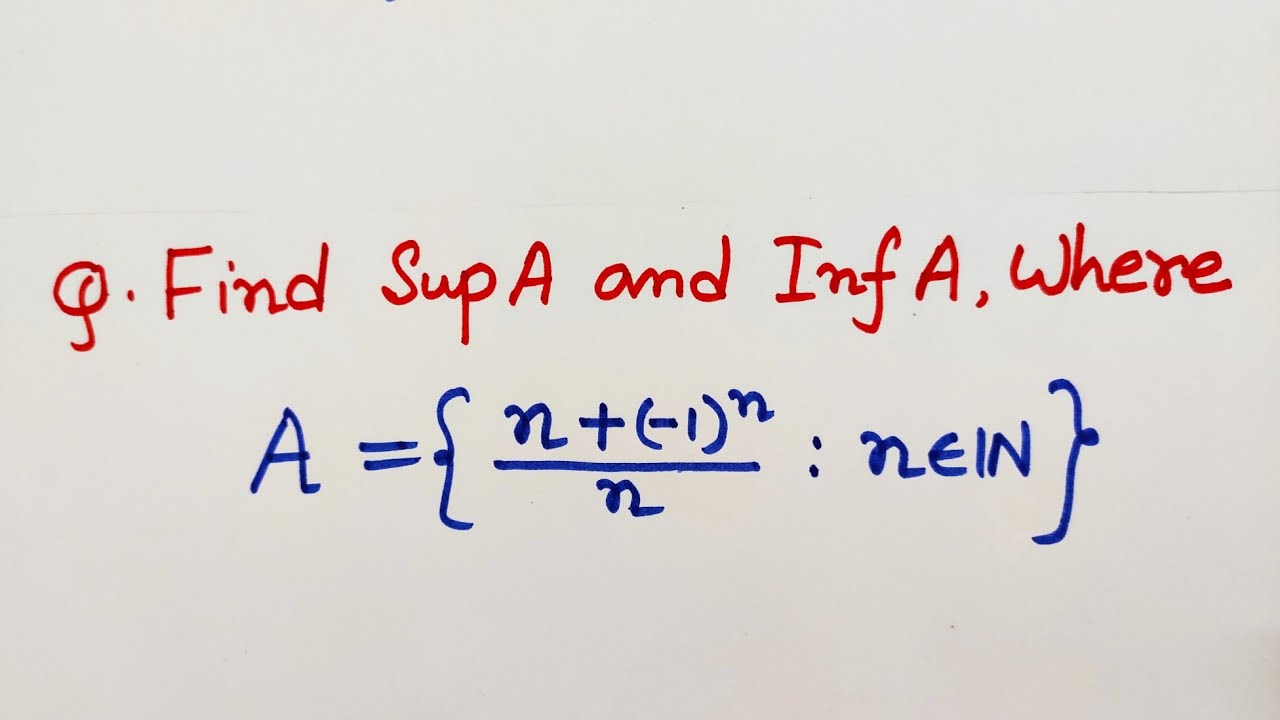 Q. Find Sup A and Inf A, Where
A = { n+(-1)^n / n : n∈ℕ }